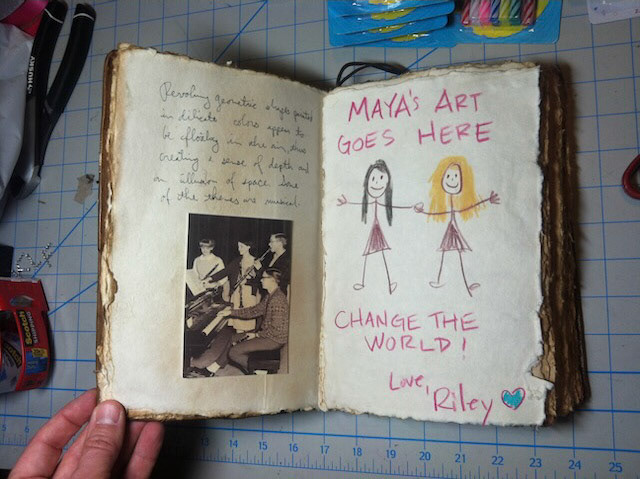 Revolving geometric shapes painted
in delicate colors appear to
be floating in the air, thus
creating a sense of depth and
an illusion of space. Some
of the themes are musical.
MAYA'S ART
GOES HERE
CHANGE THE
WORLD!
Love,
Riley
HUSKY
Scotch
5
6
12
13
14
15
16
17
18
19
20
21
22
23
24
25